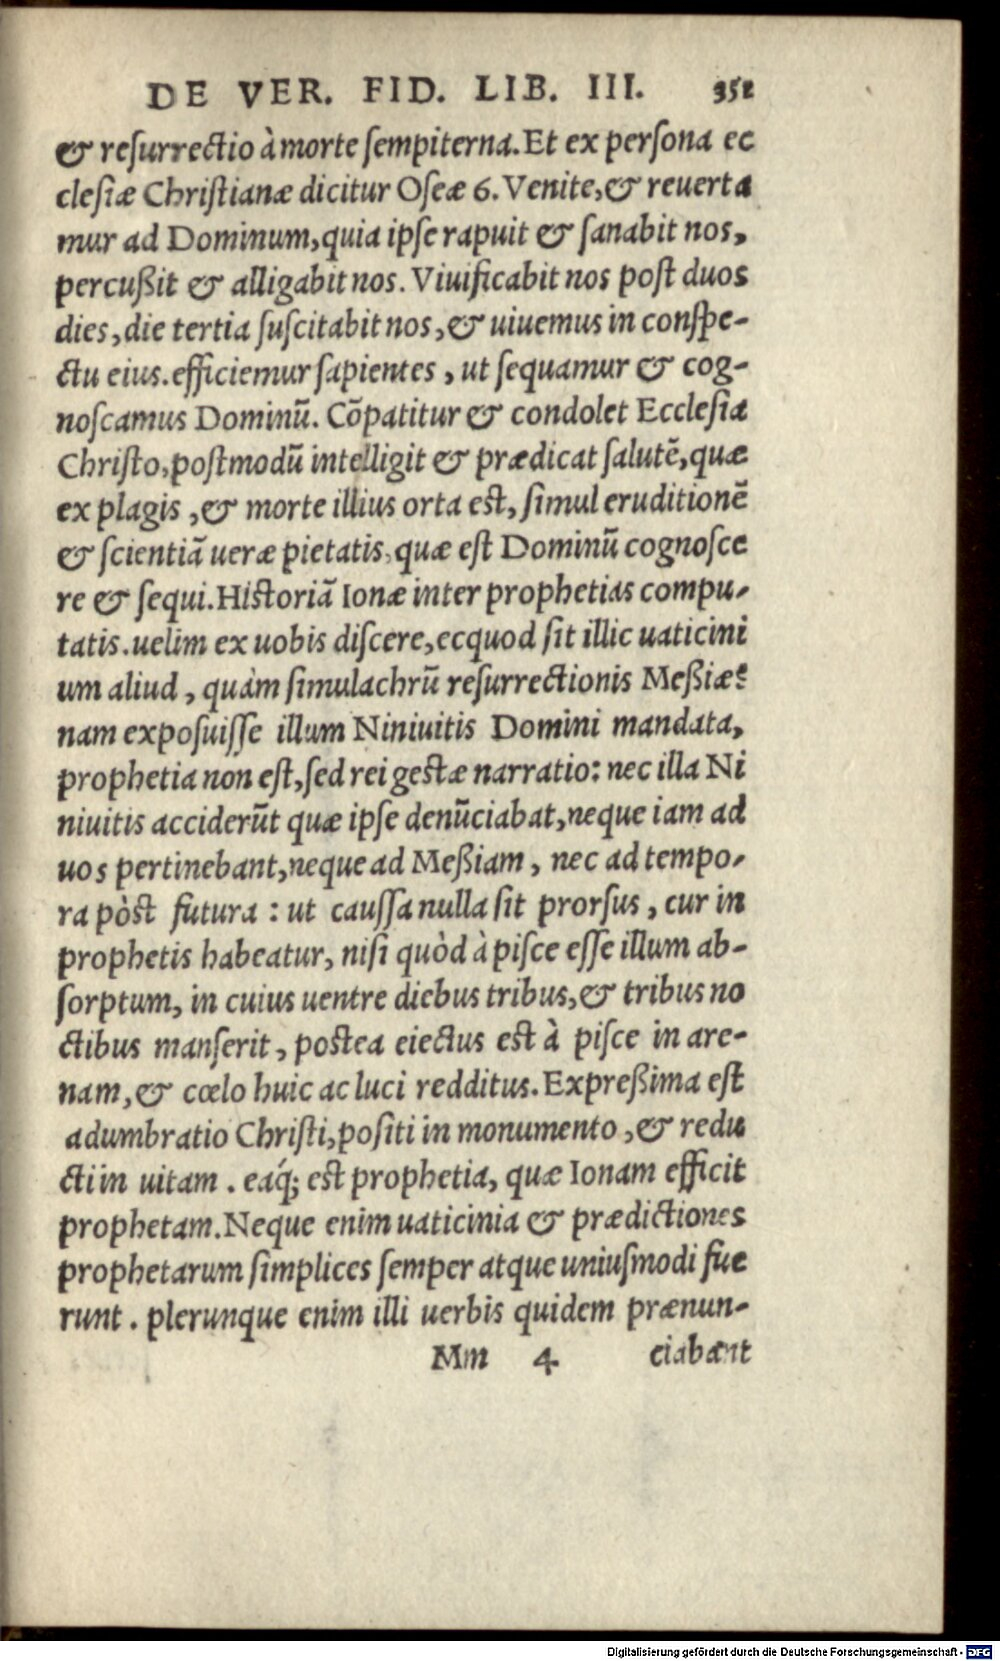 DE VER. FID. LIB. III. 351
& reſurrectio à morte ſempiterna. Et ex perſona ec
cleſiæ Chriſtianæ dicitur Oſeæ 6. Venite, & reuerta
mur ad Dominum, quia ipſe rapuit & ſanabit nos,
percußit & alligabit nos. Viuificabit nos poſt duos
dies, die tertia ſuſcitabit nos, & uiuemus in conſpe-
ctu eius. efficiemur ſapientes, ut ſequamur & cog-
noſcamus Dominū. Cōpatitur & condolet Ecclesia
Chriſto, poſtmodū intelligit & prædicat ſalutē, quæ
ex plagis, & morte illius orta eſt, ſimul eruditionē
& ſcientiā ueræ pietatis, quæ eſt Dominū cognoſce
re & ſequi. Hiſtoriā Ionæ inter prophetias compu-
tatis. uelim ex uobis diſcere, ecquod ſit illic uaticini
um aliud, quàm ſimulachrū reſurrectionis Meßiæ?
nam expoſuiſſe illum Niniuitis Domini mandata,
prophetia non eſt, ſed rei geſtæ narratio: nec illa Ni
niuitis acciderūt quæ ipſe denūciabat, neque iam ad
uos pertinebant, neque ad Meßiam, nec ad tempo-
ra pòſt futura : ut cauſſa nulla ſit prorſus, cur in
prophetis habeatur, niſi quòd à piſce eſſe illum ab-
ſorptum, in cuius uentre diebus tribus, & tribus no
ctibus manſerit, poſtea eiectus eſt à piſce in are-
nam, & cœlo huic ac luci redditus. Expreßima eſt
adumbratio Chriſti, poſiti in monumento, & redu
cti in uitam. eaq́; eſt prophetia, quæ Ionam efficit
prophetam. Neque enim uaticinia & prædictiones
prophetarum ſimplices ſemper atque uniuſmodi fue
runt. plerunque enim illi uerbis quidem prænun-
Mm 4 ciabant
Digitalisierung gefördert durch die Deutsche Forschungsgemeinschaft - DFG